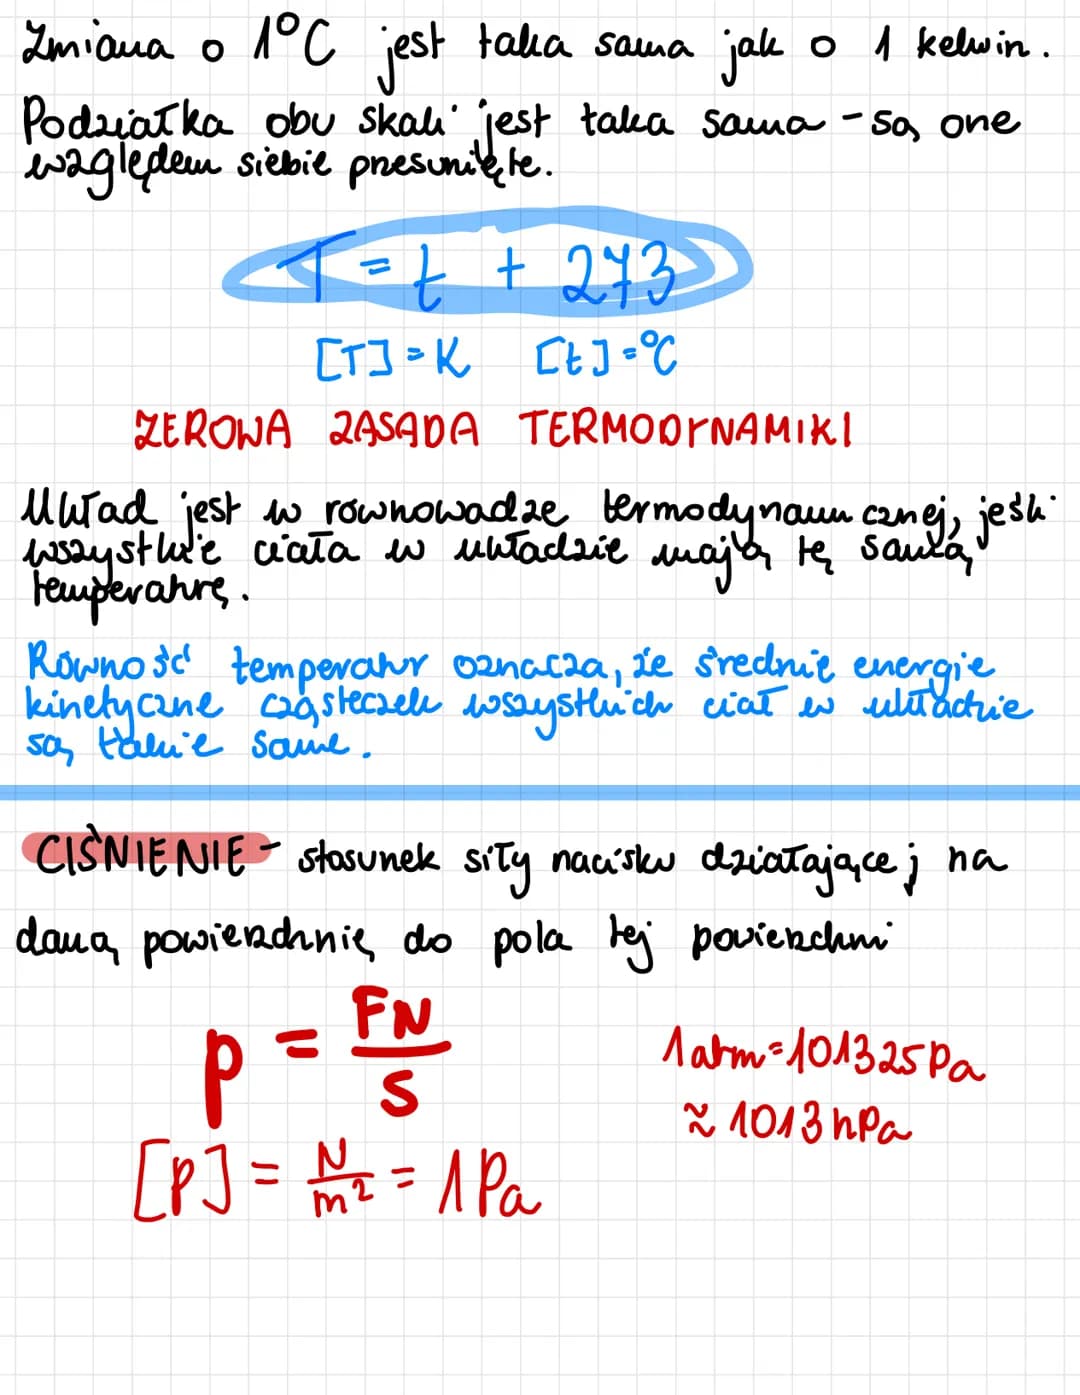 Zmiana o 1°C jest taka sama jak o 1 kelwin.
Podziałka obu skali jest taka sama - są one
względem siebie przesunięte.
T = t + 273
[T] = K [t] = °C
ZEROWA ZASADA TERMODYNAMIKI
Układ jest w równowadze termodynamicznej, jeśli
wszystkie ciała w układzie mają tę samą
temperaturę.
Równość temperatur oznacza, że średnie energie
kinetyczne cząsteczek wszystkich ciał w układzie
są takie same.
CIŚNIENIE - stosunek siły nacisku działającej na
daną powierzchnię do pola tej powierzchni
p = FN / S
1 atm = 101325 Pa
≈ 1013 hPa
[p] = N / m² = 1 Pa